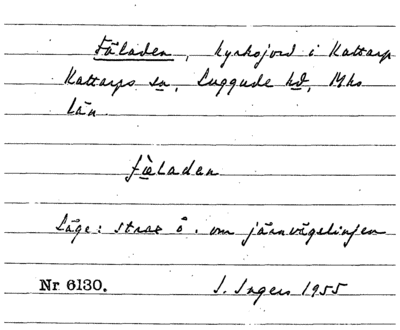 Fäladen, kyrkojord i Kattarp
Kattarps sn, Luggude hd, Mhs
län.
fäladen
Läge: strax ö. om järnvägslinjen
Nr 6130. I. Ingers 1955